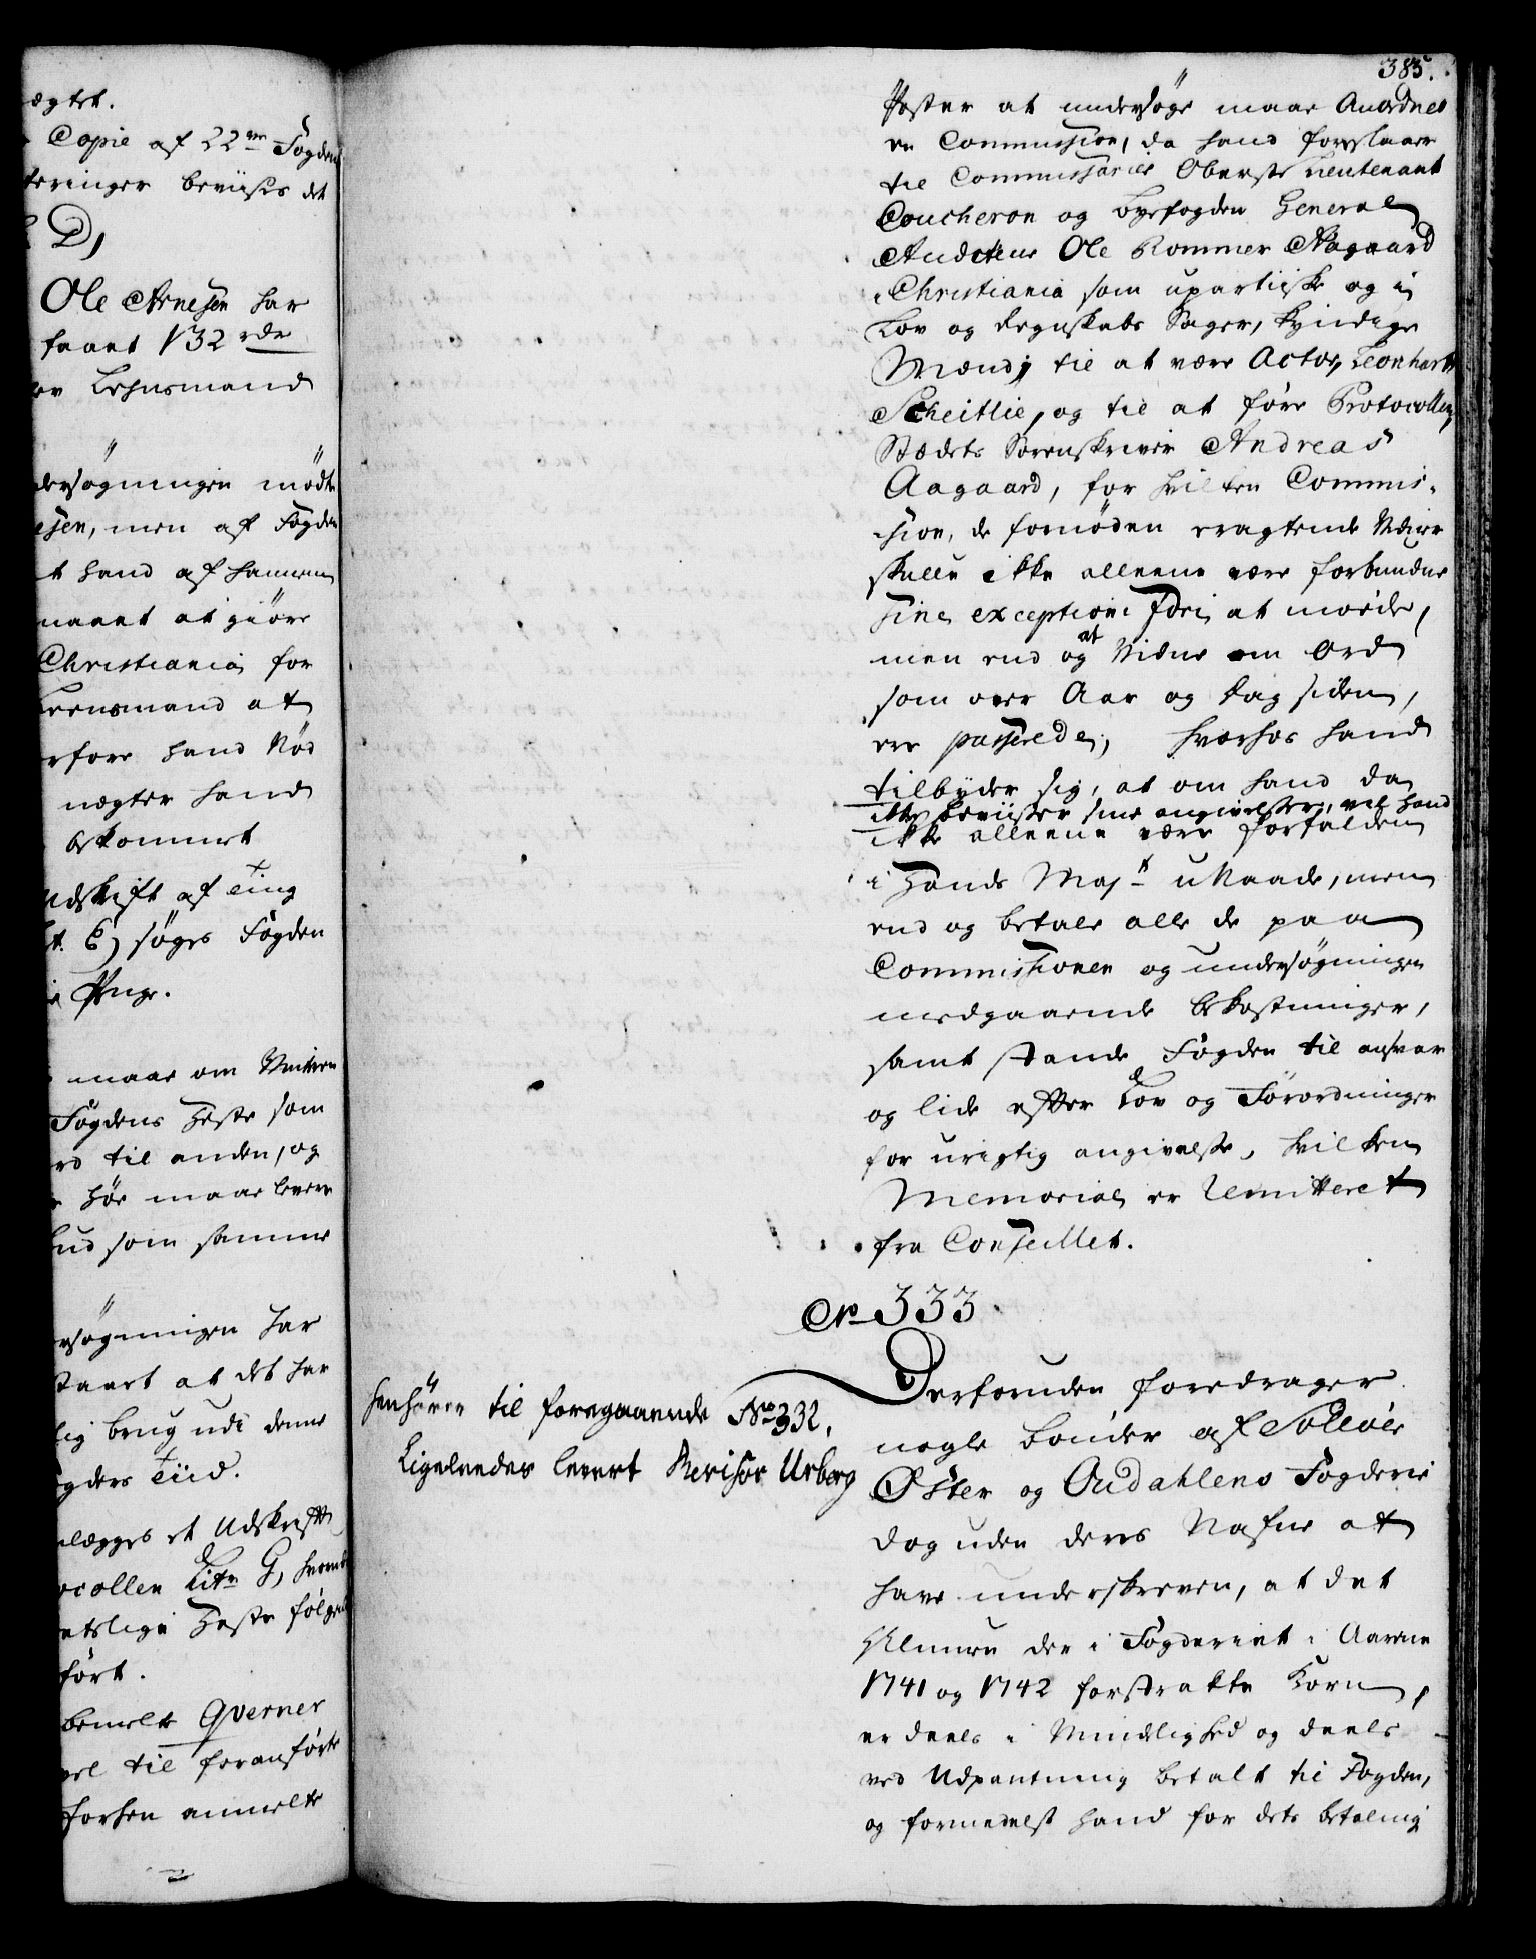 ægtet.
Copie af 22de Fogdens
teringer beviises det
D,
Ole Arnesen har
faaet 132 rdr
Lehnsmand
dersøgningen mødte
esen, men af Fogden
t hand af hannem
naaet at giöre
Christiania for
Leensmand at
rfore hand Nød
nægter hand
bekommet
Udskrift af Ting
t. E) søges Fogden
Penge.
maae om Vinteren
Fogdens Heste som
til anden, og
høe maae levere
bud som samme
rsøgningen har
staaet at det har
lig brug udi denne
gders Tiid.
lægges et Udskrift
ocollen Litr G, hvorved
Heste følge
ført.
bemelte Qverner
vel til foranførte
anmelte
385.
Poster at undersøge maae Anordnes
en Commission, da hand foreslaaer
til Commissarier Oberste Lieutenant
Coucheron og Byefogden General
Auditeur Ole Rommer Aagaard
i Christiania som upartiske og i
Lov og Regnskabs Sager, kyndige
Mænd; til at være Actor, Leonhart
Scheitlie, og til at føre Protocollen,
Stædets Sorenskriver Andreas
Aagaard, for hvilken Commis-
sion, de fornøden eragtende Vidner
skulle ikke alleene være forbundne
sine exceptione fori at møde,
men end og at Vidne om Ord
som over Aar og Dag siden,
ere passerede, hvorhos hand
tilbyder sig, at om hand da
ikke beviiser sine angivelser, vil hand
ikke alleene være forfalden
i Hands Maj:ts unaade, men
end og betale alle de paa
Commissionen og undersøgningen
medgaaende bekostninger,
samt stande Fogden til ansvar
og lide efter Lov og Forordninger
for urigtig angivelse, hvilken
Memorial er Remitteret
fra Conseillet.
No 333.
henhører til foregaaende No 332.
Ligeleedes levert Revisor Urberg
Derforuden foredrager
nogle bönder af Solloer
Øster og Oudahlens Fogderie
dog uden deres Nafne at
have underskreven, at det
Almuen der i Fogderiet i Aarene
1741 og 1742 forstrakte Korn,
er deels i Mindelighed og deels
ved Udpantning betalt til Fogden,
og formedelst hand for dets betaling